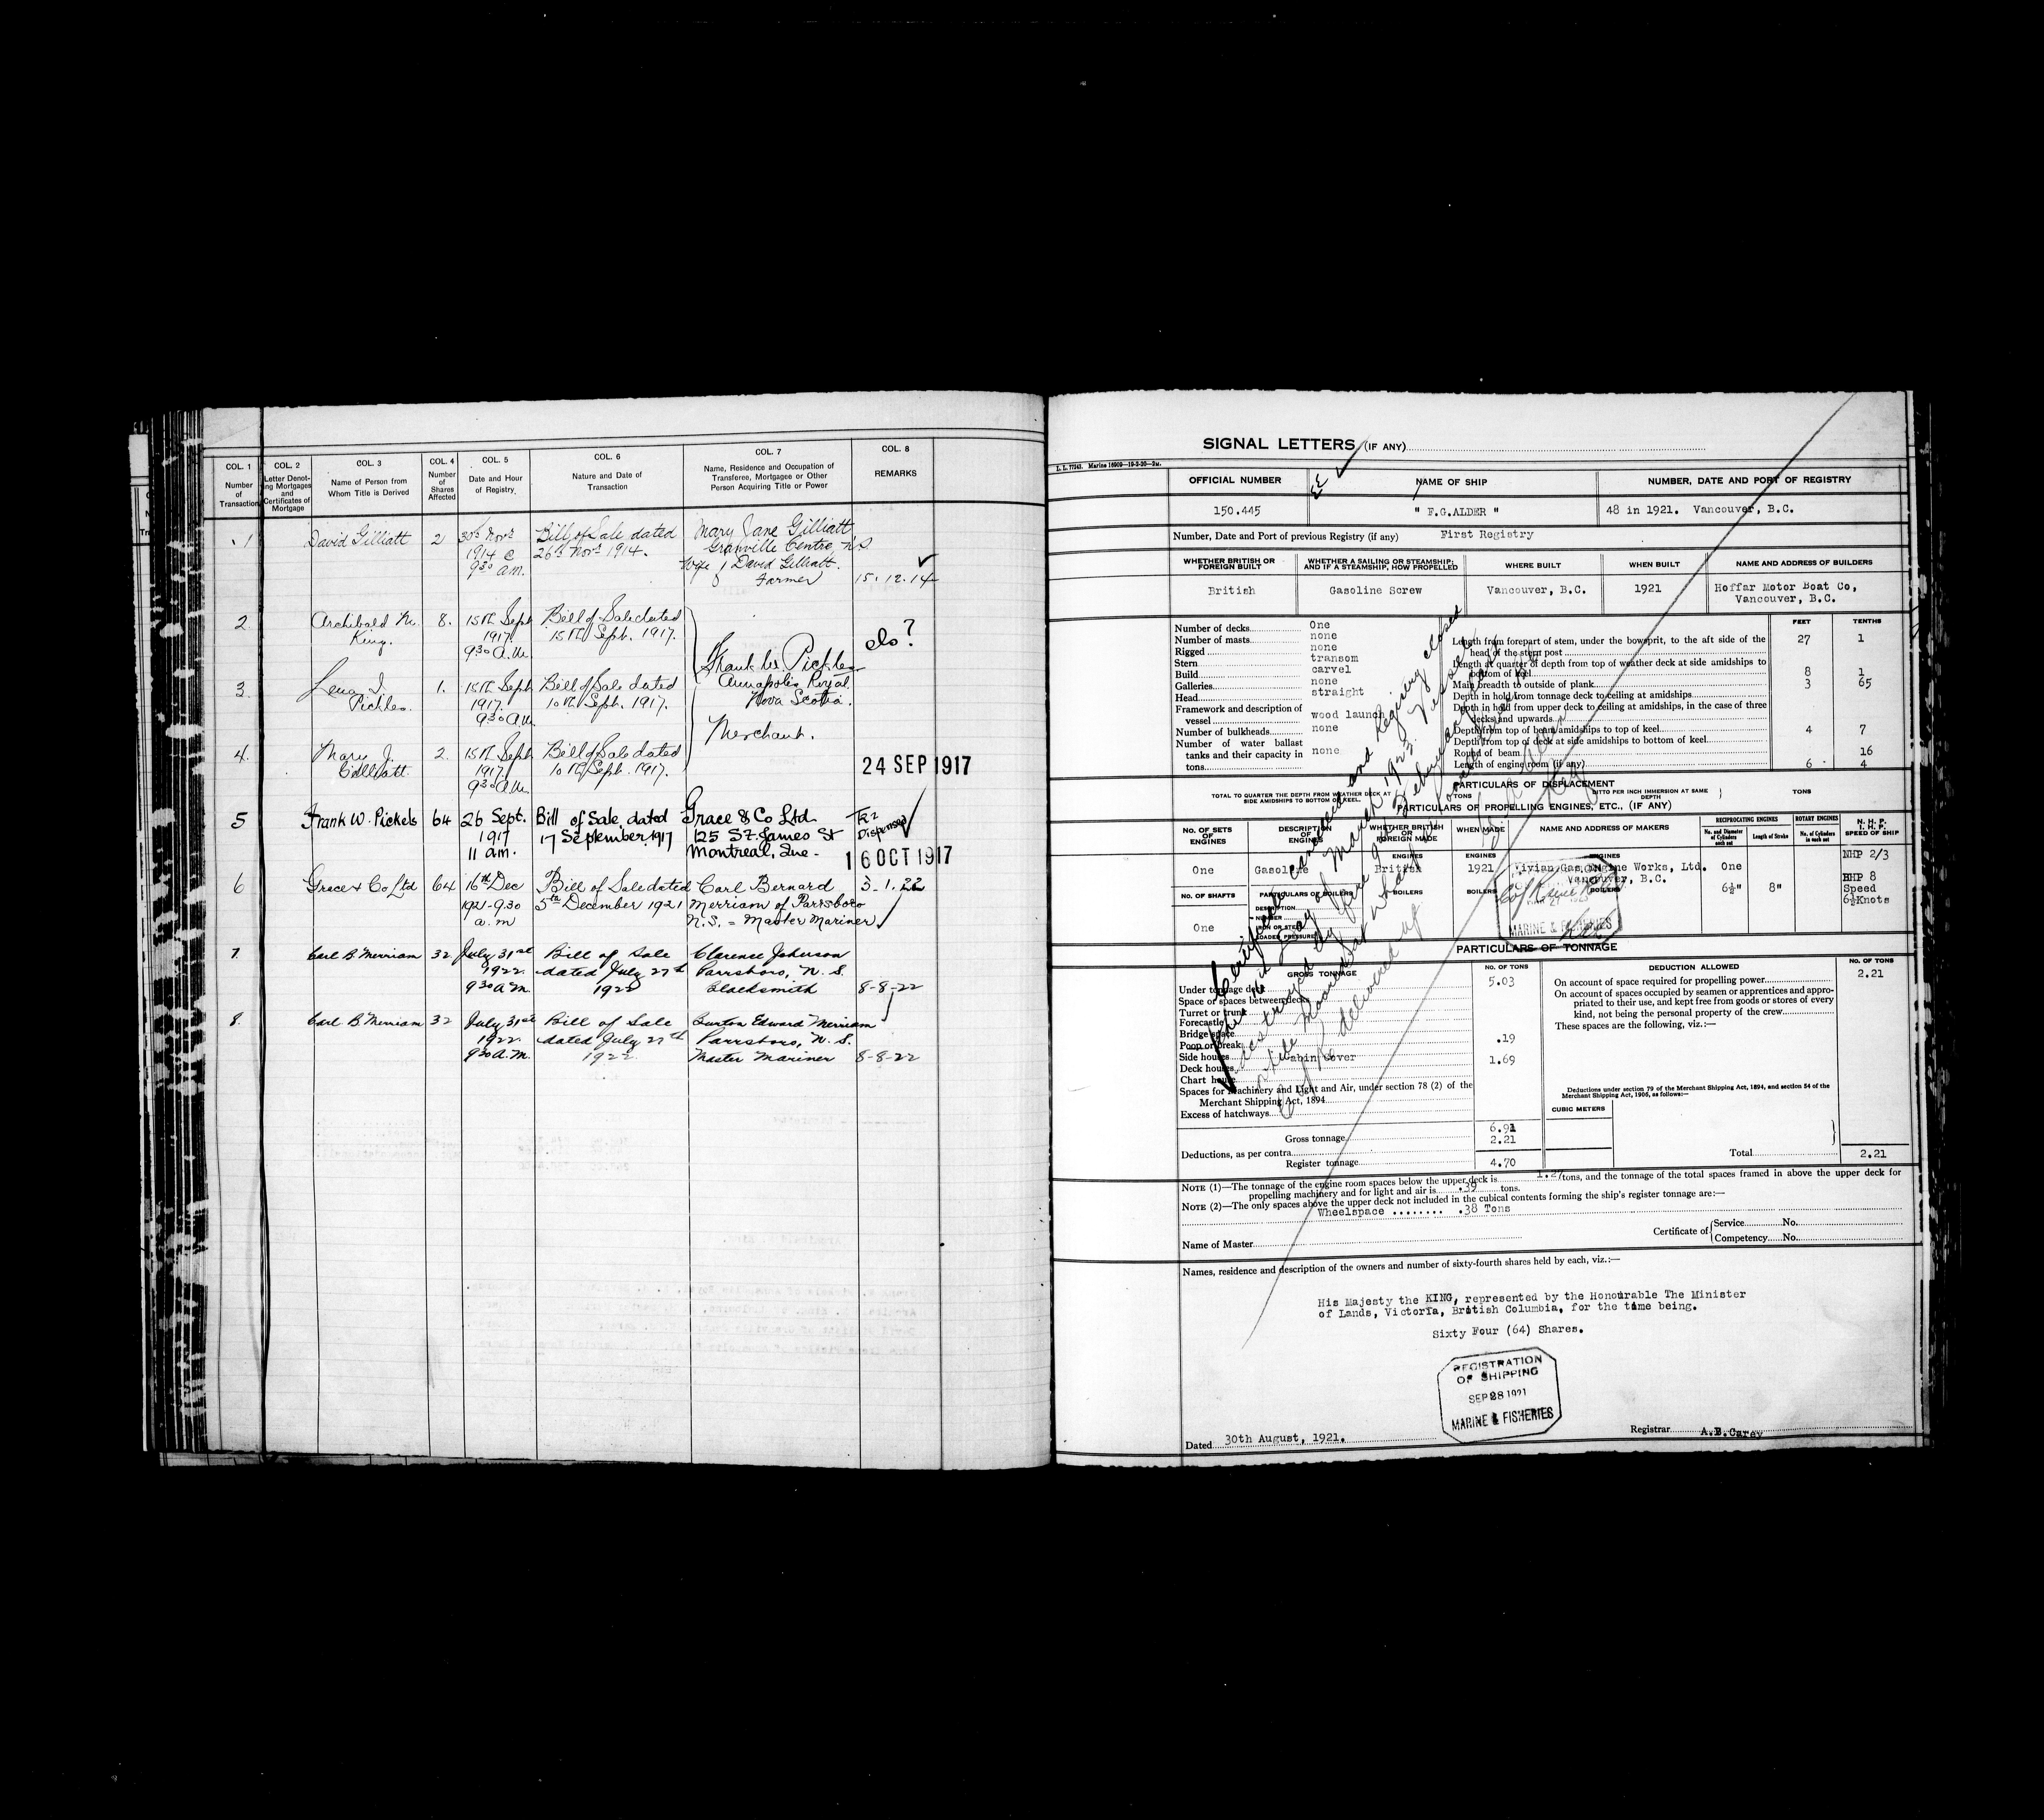 COL. 1
Number
of
Transaction
COL. 2
Letter Denot-
ing Mortgages
and
Certificates of
Mortgage
COL. 3
Name of Person from
Whom Title is Derived
COL. 4
Number
of
Shares
Affected
COL. 5
Date and Hour
of Registry
COL. 6
Nature and Date of
Transaction
COL. 7
Name, Residence and Occupation of
Transferee, Mortgagee or Other
Person Acquiring Title or Power
COL. 8
REMARKS
1 David Gilliatt 2 30th Novr Bill of Sale dated Mary Jane Gilliatt
1914 @ 26th Novr 1914. Granville Centre, N.S.
9 30 a.m. Wife of David Gilliatt.
Farmer 15.12.14
2. Archibald M. 8. 15th Sept Bill of Sale dated
King. 1917. 15th Sept. 1917. do?
9 30 A.M.
Frank W. Pickles
Annapolis Royal
3. Lena I. 1. 15th Sept Bill of Sale dated
Pickles. 1917. 10th Sept. 1917. Nova Scotia.
9.30 A.M.
Merchant.
4. Mary J. 2. 15th Sept Bill of Sale dated
Gilliatt. 1917. 10th Sept. 1917. 24 SEP 1917
9 30 A.M.
5 Frank W. Pickels 64 26 Sept. Bill of Sale, dated Grace & Co Ltd
1917 17 September, 1917 125 St. James St Dispensed
11 a.m. Montreal, Que. 16 OCT 1917
6 Grace & Co Ltd 64 16th Dec Bill of Sale dated Carl Bernard 3-1.22
1921-9.30 5th December 1921 Merriam of Parrsboro
a.m N.S. = Master Mariner
7. Carl B. Merriam 32 July 31st Bill of Sale Clarence Johnson
1922. dated July 27th Parrsboro, N.S.
9 30 A.M. 1922 Blacksmith 8-8-22
8. Carl B. Merriam 32 July 31st Bill of Sale Burton Edward Merriam
1922. dated July 27th Parrsboro, N.S.
9 30 A.M. 1922. Master Mariner 8-8-22
SIGNAL LETTERS (IF ANY)
L. L. 77243. Marine 16909—19-3-20—2M.
OFFICIAL NUMBER NAME OF SHIP NUMBER, DATE AND PORT OF REGISTRY
150.445 " F.G.ALDER " 48 in 1921. Vancouver, B.C.
Number, Date and Port of previous Registry (if any) First Registry
WHETHER BRITISH OR
FOREIGN BUILT
WHETHER A SAILING OR STEAMSHIP;
AND IF A STEAMSHIP, HOW PROPELLED
WHERE BUILT WHEN BUILT NAME AND ADDRESS OF BUILDERS
British Gasoline Screw Vancouver, B.C. 1921 Hoffar Motor Boat Co,
Vancouver, B.C.
Number of decks One
Number of masts none
Rigged none
Stern transom
Build carvel
Galleries none
Head straight
Framework and description of
vessel wood launch
Number of bulkheads none
Number of water ballast
tanks and their capacity in none
tons
FEET TENTHS
Length from forepart of stem, under the bowsprit, to the aft side of the 27 1
head of the stern post
Length at quarter of depth from top of weather deck at side amidships to
bottom of keel 8 1
Main breadth to outside of plank 3 65
Depth in hold from tonnage deck to ceiling at amidships
Depth in hold from upper deck to ceiling at amidships, in the case of three
decks and upwards
Depth from top of beam amidships to top of keel 4 7
Depth from top of deck at side amidships to bottom of keel
Round of beam 16
Length of engine room (if any) 6 4
PARTICULARS OF DISPLACEMENT
TOTAL TO QUARTER THE DEPTH FROM WEATHER DECK AT
SIDE AMIDSHIPS TO BOTTOM OF KEEL TONS
DITTO PER INCH IMMERSION AT SAME
DEPTH TONS
PARTICULARS OF PROPELLING ENGINES, ETC., (IF ANY)
NO. OF SETS
OF
ENGINES
DESCRIPTION
OF
ENGINES
WHETHER BRITISH
OR
FOREIGN MADE
WHEN MADE NAME AND ADDRESS OF MAKERS
RECIPROCATING ENGINES
No. and Diameter
of Cylinders
each set
Length of Stroke
ROTARY ENGINES
No. of Cylinders
in each set
N. H. P.
I. H. P.
SPEED OF SHIP
ENGINES ENGINES ENGINES NHP 2/3
One Gasoline British 1921 Vivian Gas Engine Works, Ltd. One
Vancouver, B.C. BHP 8
NO. OF SHAFTS PARTICULARS OF BOILERS BOILERS BOILERS BOILERS 6½" 8" Speed
6½Knots
DESCRIPTION
NUMBER
One IRON OR STEEL
LOADED PRESSURE
MARINE & FISHERIES
PARTICULARS OF TONNAGE
GROSS TONNAGE NO. OF TONS DEDUCTION ALLOWED NO. OF TONS
Under tonnage deck 5.03
Space or spaces between decks
Turret or trunk
Forecastle
Bridge space
Poop or break .19
Side houses Cabin Cover 1.69
Deck houses
Chart house
Spaces for Machinery and Light and Air, under section 78 (2) of the
Merchant Shipping Act, 1894
Excess of hatchways
Gross tonnage 6.91
Deductions, as per contra 2.21
Register tonnage 4.70
On account of space required for propelling power 2.21
On account of spaces occupied by seamen or apprentices and appro-
priated to their use, and kept free from goods or stores of every
kind, not being the personal property of the crew
These spaces are the following, viz.:—
Deductions under section 79 of the Merchant Shipping Act, 1894, and section 54 of the
Merchant Shipping Act, 1906, as follows:—
CUBIC METERS
Total 2.21
NOTE (1)—The tonnage of the engine room spaces below the upper deck is 1.27 tons, and the tonnage of the total spaces framed in above the upper deck for
propelling machinery and for light and air is .39 tons.
NOTE (2)—The only spaces above the upper deck not included in the cubical contents forming the ship's register tonnage are:—
Wheelspace ........ .38 Tons
Name of Master
Certificate of Service No.
Competency No.
Names, residence and description of the owners and number of sixty-fourth shares held by each, viz.:—
His Majesty the KING, represented by the Honourable The Minister
of Lands, Victoria, British Columbia, for the time being.
Sixty Four (64) Shares.
REGISTRATION
OF SHIPPING
SEP 28 1921
MARINE & FISHERIES
Dated 30th August, 1921.
Registrar A.B.Carey
Certificate cancelled and Registry closed
this 16th day of March 1923. Vessel
destroyed by fire 9th February
while moored at wharf